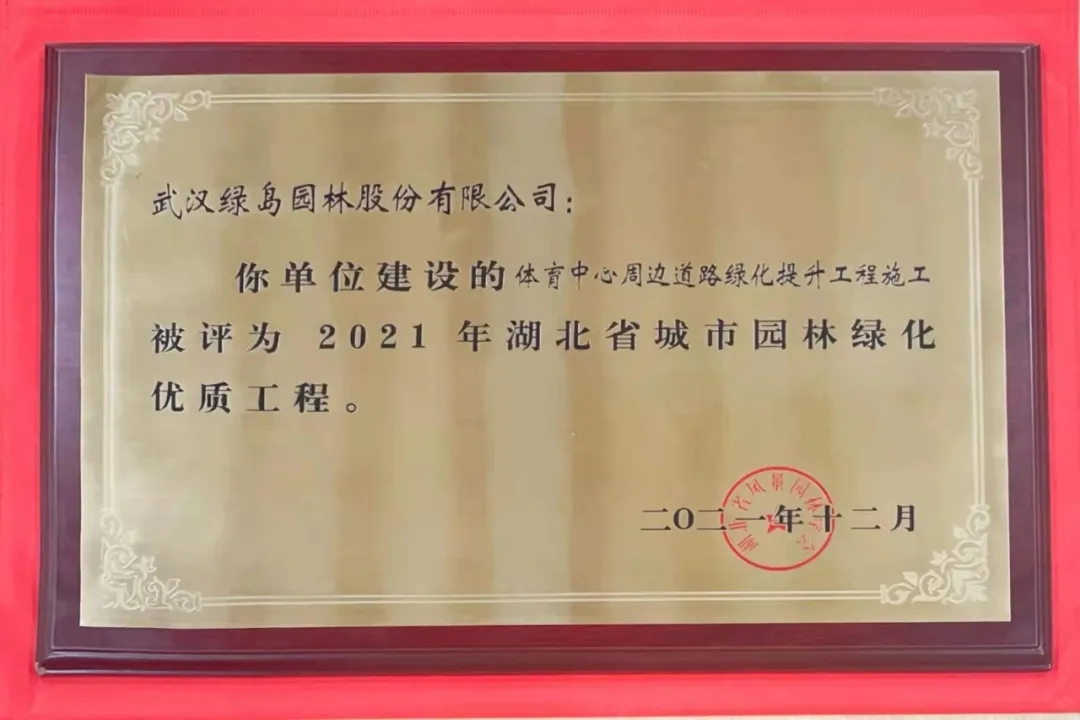 武汉绿岛园林股份有限公司：
你单位建设的体育中心周边道路绿化提升工程施工
被评为 2021 年湖北省城市园林绿化
优质工程。
二〇二一年十二月
湖北省风景园林学会